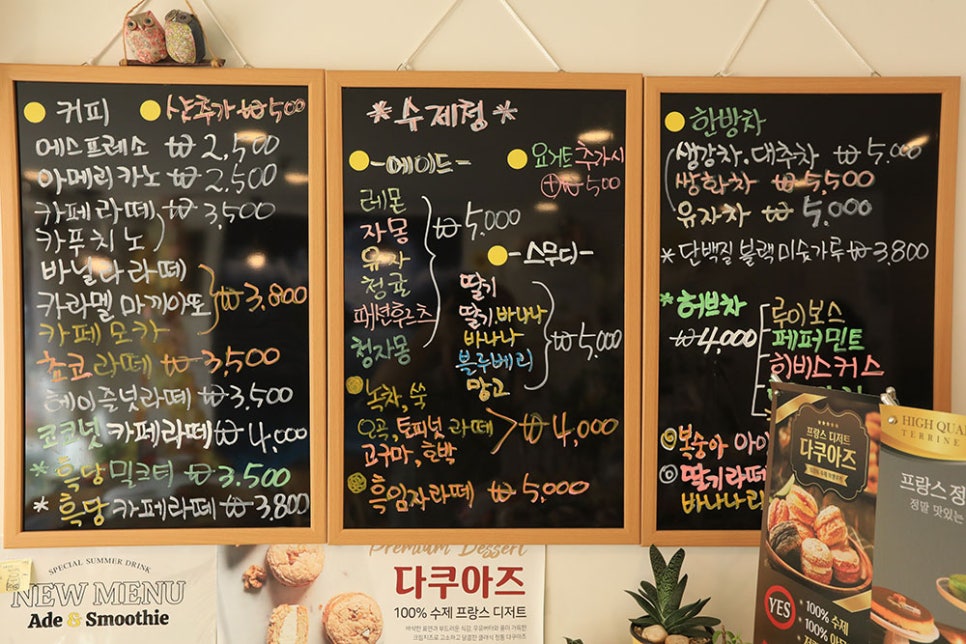 커피 샷추가 ₩500
에스프레소 ₩2,500
아메리카노 ₩2,500
카페라떼 ₩3,500
카푸치노
바닐라라떼
카라멜마끼아또 ₩3,800
카페모카
쵸코라떼 ₩3,500
헤이즐넛라떼 ₩3,500
코코넛카페라떼 ₩4,000
*흑당밀크티 ₩3.500
*흑당카페라떼 ₩3,800
*수제청*
-에이드-
요거트 추가시
⊕₩500
레몬
자몽 ₩5,000
유자
청귤
패션후르츠
청자몽
-스무디-
딸기
딸기,바나나
바나나 ₩5,000
블루베리
망고
녹차,쑥
오곡,토피넛라떼 ₩4,000
고구마,호박
흑임자라떼 ₩5,000
한방차
생강차.대추차 ₩5,000
쌍화차 ₩5,500
유자차 ₩5,000
*단백질블랙미숫가루 ₩3,800
*허브차
₩4,000
루이보스
페퍼민트
히비스커스
복숭아 아이
딸기라떼
바나나라
SPECIAL SUMMER DRINK
NEW MENU
Ade & Smoothie
Premium Dessert
다쿠아즈
100% 수제 프랑스 디저트
프랑스 디저트
다쿠아즈
100% 수제
YES
* 100% 수제
* 100%
HIGH QUA
TERRINE
프랑스 정
정말 맛있는